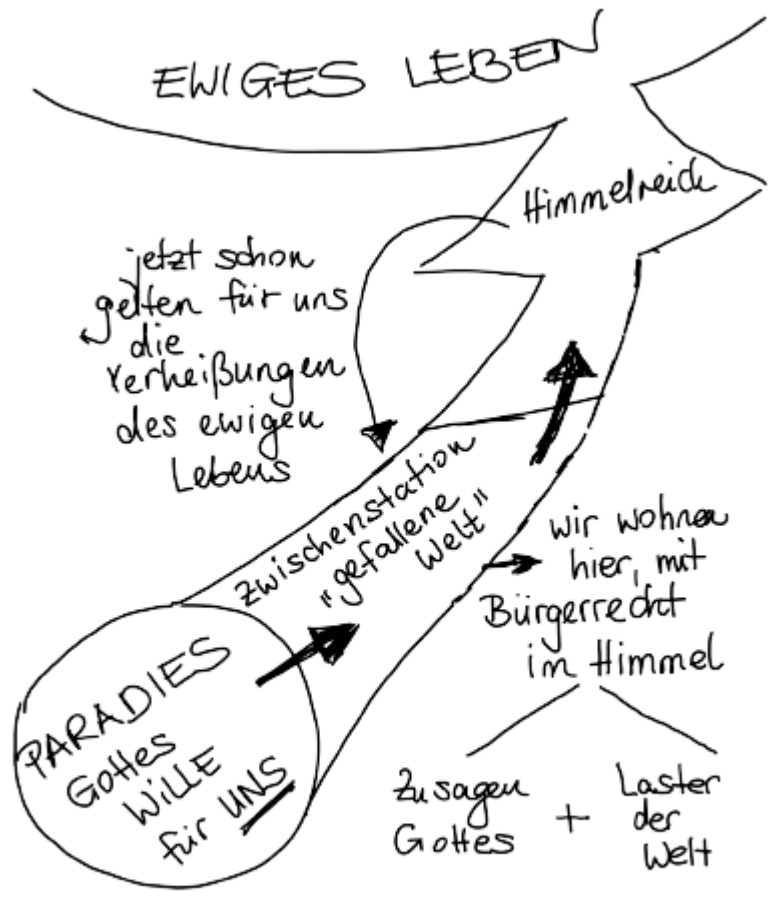 EWIGES LEBEN
Himmelreich
jetzt schon
gelten für uns
die
Verheißungen
des ewigen
Lebens
Zwischenstation
"gefallene
Welt"
wir wohnen
hier, mit
Bürgerrecht
im Himmel
PARADIES
Gottes
WiLLE
für UNS
Zusagen
Gottes
+
Laster
der
Welt